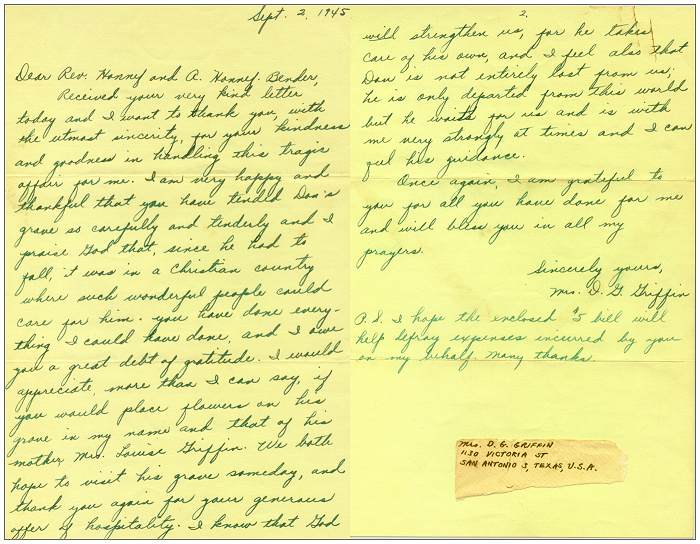 Sept. 2, 1945
Dear Rev. Honnef and A. Honnef-Bender,
Received your very kind letter
today and I want to thank you, with
the utmost sincirity, for your kindness
and goodness in handling this tragic
affair for me. I am very happy and
thankful that you have tended Don's
grave so carefully and tenderly and I
praise God that, since he had to
fall, it was in a Christian country
where such wonderful people could
care for him. You have done every-
thing I could have done, and I owe
you a great debt of gratitude. I would
appreciate, more than I can say, if
you would place flowers on his
grave in my name and that of his
mother, Mrs. Louise Griffin. We both
hope to visit his grave someday, and
thank you again for your generous
offer of hospitality. I know that God
2.
will strengthen us, for he takes
care of his own, and I feel also that
Don is not entirely lost from us;
he is only departed from this world
but he waits for us and is with
me very strongly at times and I can
feel his guidance.
Once again, I am grateful to
you for all you have done for me
and will bless you in all my
prayers.
Sincerely yours,
Mrs. D. G. Griffin
P.S. I hope the enclosed $5 bill will
help defray expenses incurred by you
on my behalf. Many thanks.
Mrs. D. G. GRIFFIN
1130 VICTORIA ST
SAN ANTONIO 3, TEXAS, U.S.A.